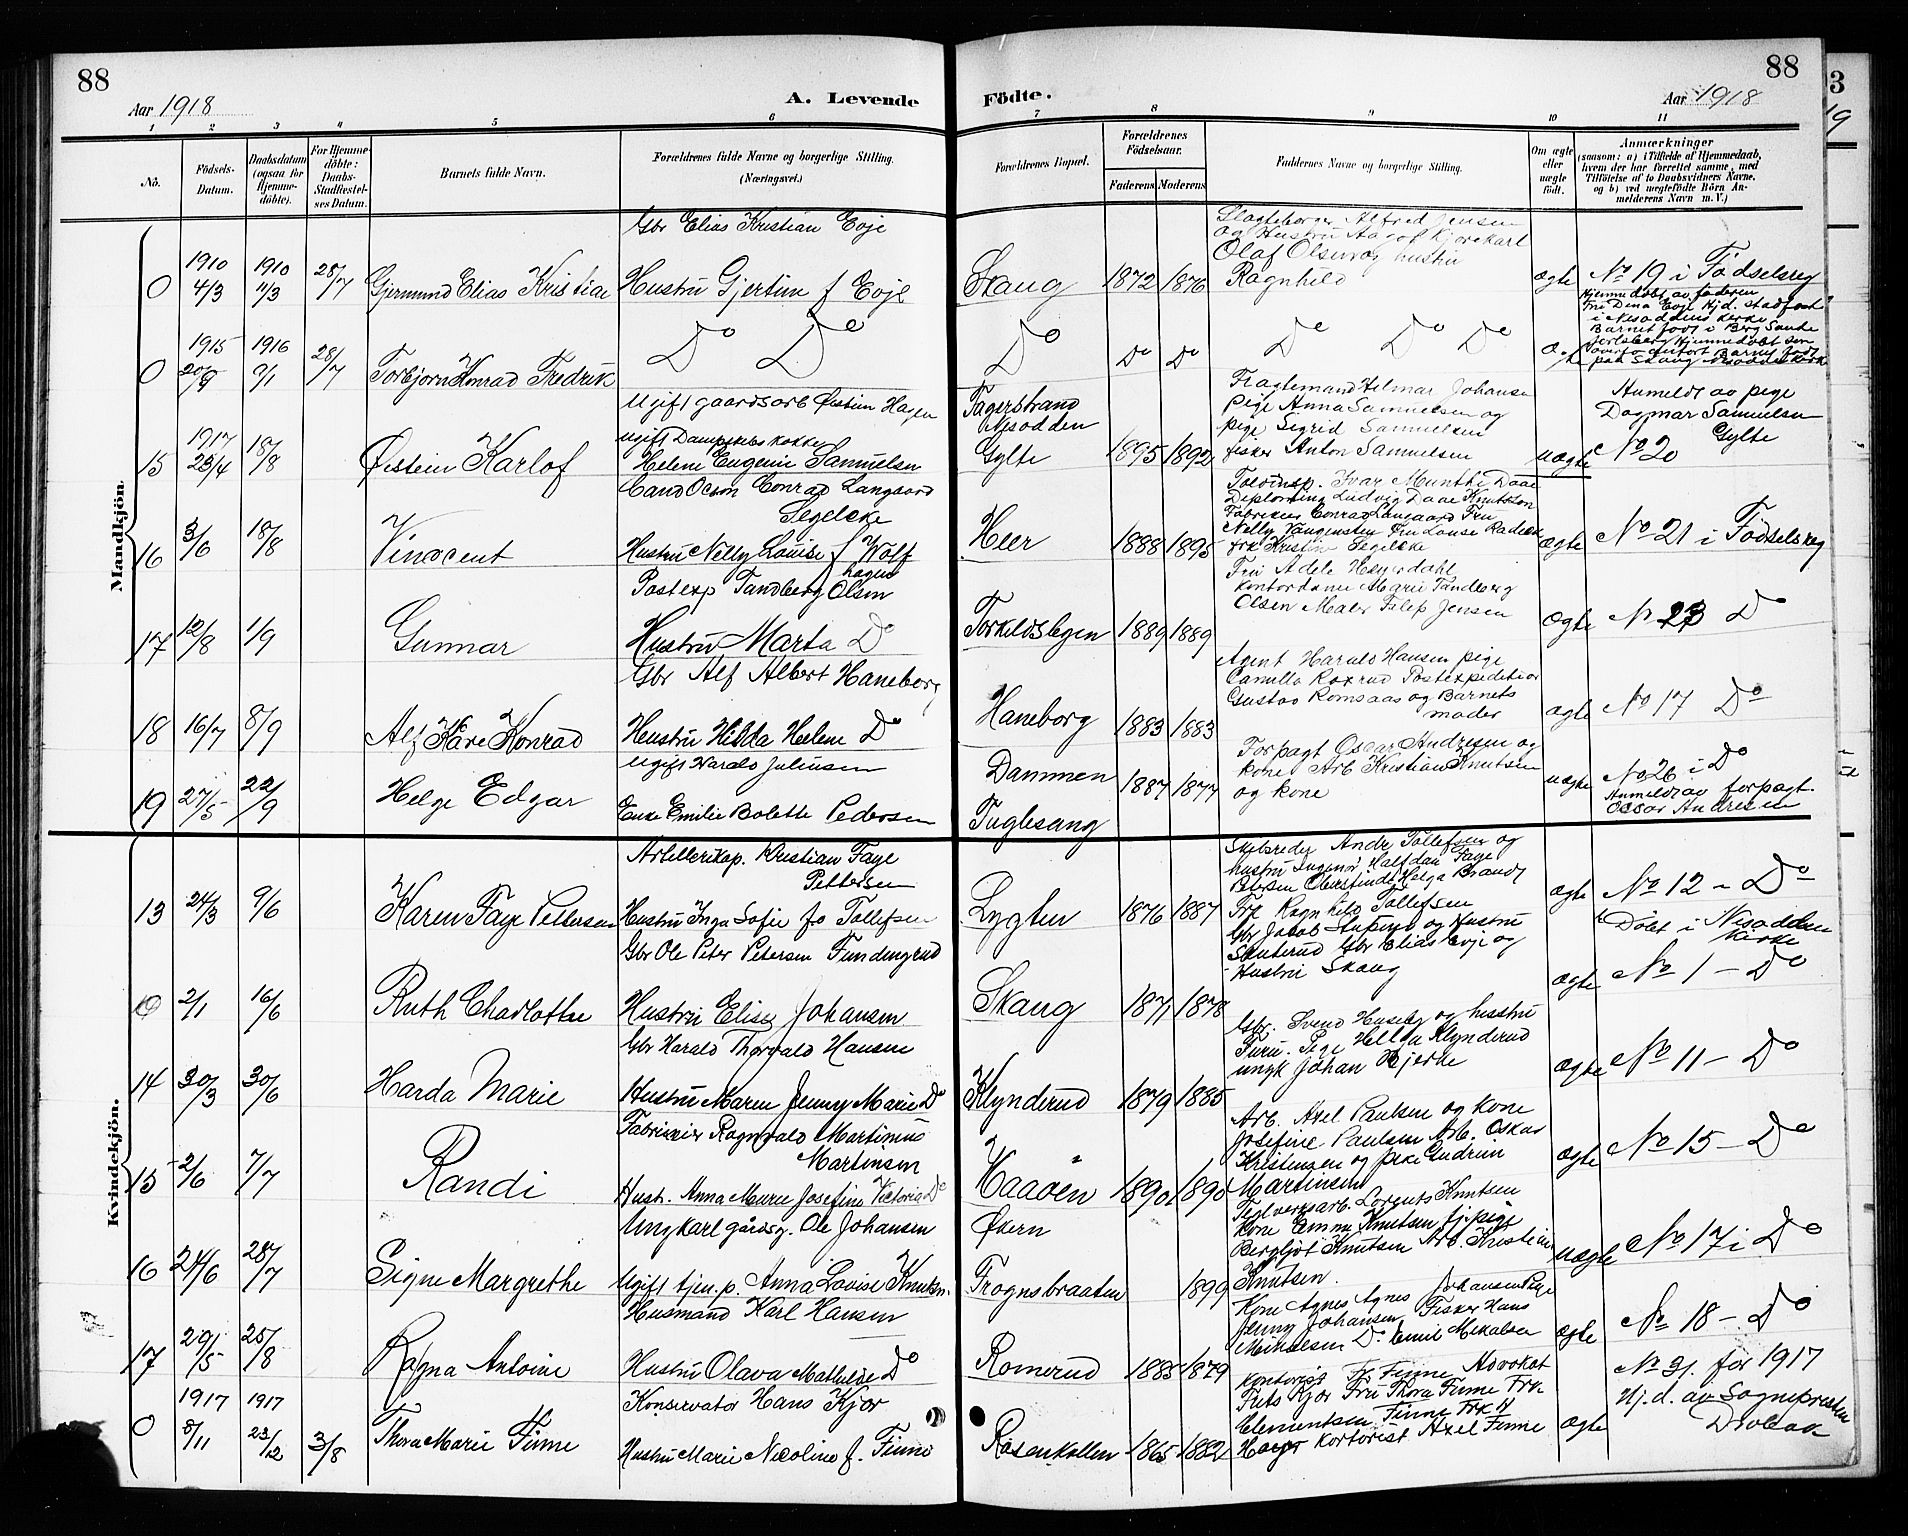 88
88
Aar 1918
A. Levende
Födte.
Aar 1918
1 2 3 4 5 6 7 8 9 10 11
No.
Födsels-Datum.
Daabsdatum (ogsaa for Hjemme-döbte).
For Hjemme-döbte: Daabs-Stadfæstel-ses Datum.
Barnets fulde Navn.
Forældrenes fulde Navne og borgerlige Stilling. (Næringsvei.)
Forældrenes Bopæl.
Forældrenes Födselsaar.
Faderens Moderens
Faddernes Navne og borgerlige Stilling.
Om ægte eller uægte født.
Anmærkninger
(saasom: a) i Tilfælde af Hjemmedaab, hvem der har forrettet samme, med Tilföielse af to Daabsvidners Navne, og b) ved uegtefödte Börn An-melderens Navn m. V.)
Mandkjön.
Gbr Elias Kristian Evje
Slagteborger Alfred Jensen
og Hustru Aagot Kjorekarl
Olaf Olsen og hustru
0 1910 4/3 1910 11/3 28/7 Gjermund Elias Kristian Hustru Gjertine f Evje Skaug 1872 1876 Ragnhild ægte No 19 i Födselsreg
Hjemmedøbt av faderen
Fru Dina Evje Hjd. stadfæst
i Nesoddens kirke
0 1915 20/9 1916 9/1 28/7 Torbjørn Konrad Fredrik Do Do Do Do Do Do Do Do ægte
Ugift gaardsarb Øistein Hagen
Fagerstrand
Nesodden
Fragtemand Hilmar Johansen
pige Anna Samuelsen og
pige Sigrid Samuelsen
Anmeldt av pige
Dagmar Samuelsen
Gylte
ugift Dampskibskokke
15 1917 25/4 18/8 Øistein Karlof Helene Eugenie Samuelsen Gylte 1895 1892 fisker Anton Samuelsen uægte No 20
Cand Oecon Conrad Langaard
Segelcke
Toldinsp. Ivar Munthe Daae
Diploming Ludvig Daae Knutsson
Fabrikeier Conrad Langaard Fru
16 3/6 18/8 Vincent Hustru Nelly Louise f Wolf Heer 1888 1895 frk Kristine Segelcke ægte No 21 i Födselsreg
hagen
Postexp Tandberg Olsen
Fru Adele Heyerdahl
Kontordame Marie Tandberg
Olsen Maler Filip Jensen
17 12/8 1/9 Gunnar Hustru Marta Do Torkildslegen 1889 1889 ægte No 23 Do
Gbr Alf Albert Haneborg
Agent Harald Hansen pige
Camilla Roxrud Postexpeditior
Gustav Romsaas og Barnets
moder
18 16/7 8/9 Alf Kåre Konrad Hustru Hilda Helene Do Haneborg 1883 1883 ægte No 17 Do
Ugift Harald Juliussen
Dammen
Forpagt Oscar Andresen og
kone, Arb Kristian Knutsen
og kone
19 27/5 22/9 Helge Edgar Enke Emilie Bolette Pedersen Fuglesang 1887 1877 uægte No 26 i Do
Anmeldt av forpagt.
Oscar Andresen
Kvindekjön.
Artillerikap. Kristian Faye
Pettersen
Skibsreder Andr Tollefsen og
hustru Ingeniør Halfdan Faye
13 24/3 9/6 Karen Faye Pettersen Hustru Inga Sofie fo Tollefsen Lygten 1876 1887 Frk Ragnhild Tollefsen ægte No 12 - Do
Døbt i Nesodden
Kirke
Gbr Ole Peter Petersen Fundingrud
Gbr Jacob Stuperud og Hustru
Skuterud Gbr Elias Evje og
Hustru Skaug
0 2/1 16/6 Ruth Charlotte Hustru Elise Johansen Skaug 1871 1878 ægte No 1 - Do
Gbr Harald Thorvald Hansen
Gbr. Svend Huseby og hustru
Turii. Pige Helga Klynderud
ungk Johan Bjerke
14 30/3 30/6 Harda Marie Hustru Maren Jenny Marie Do Klynderud 1879 1885 ægte No 11 - Do
Fabrikeier Ragnvald Martinius
Martinsen
Arb. Axel Paulsen og kone
Josefine Paulsen Arb. Oskar
Kristensen og frk Gudrun
Martinsen
15 2/6 7/7 Randi Hust. Anna Marie Josefine Victoria Do Haaøen 1890 1890 ægte No 15 - Do
Ungkarl gårdsg. Ole Johansen
Økern
Teglverksarb. Lorents Knutsen
kone Emma Knutsen tj. pige
Bergljot Knutsen Arb. Kristian
Knutsen.
16 24/6 28/7 Signe Margrethe Ugift tjen. p. Anna Lovise Knutsen. Frognsbraaten 1899 uægte No 17 i Do
Husmand Karl Hansen
Kone Agnes Agnes Johansen Pige
Jenny Johansen Fisker Hans
Mikalsen Do Emil Mikalsen
17 29/5 25/8 Ragna Antoine Hustru Olava Mathilde Do Romerud 1885 1879 ægte No 18 - Do
Konservator Hans Kjær
kontorist Fr Finne Advokat
Frits Kjær Fru Thora Finne Frk
Clementsen Finne Frk H
Kontorist Axel Finne
No 31. for 1917
Hj. d. av Sognepresten
Drøbak
0 1917 8/11 1917 23/12 3/8 Thora Marie Finne Hustru Marie Nicoline f. Finne Rosenkollen 1865 1882 ægte